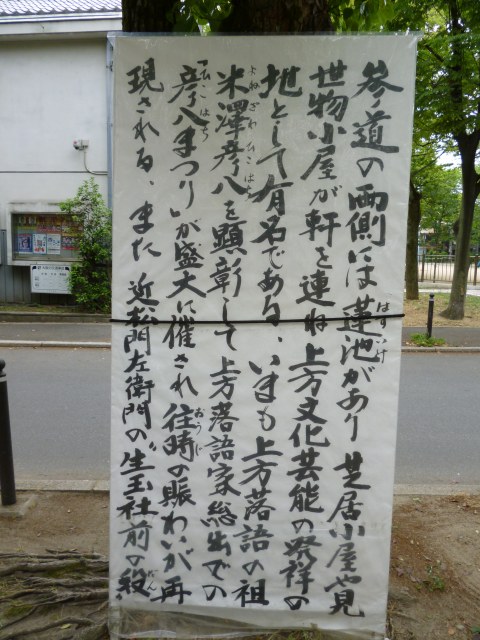 参道の両側には蓮池があり 芝居小屋や見
世物小屋が軒を連ね上方文化芸能の発祥の
地として有名である。いまも上方落語の祖
米澤彦八を顕彰して上方落語家総出での
「彦八まつり」が盛大に催され往時の賑わいが再
現される、また 近松門左衛門の"生玉社前の段